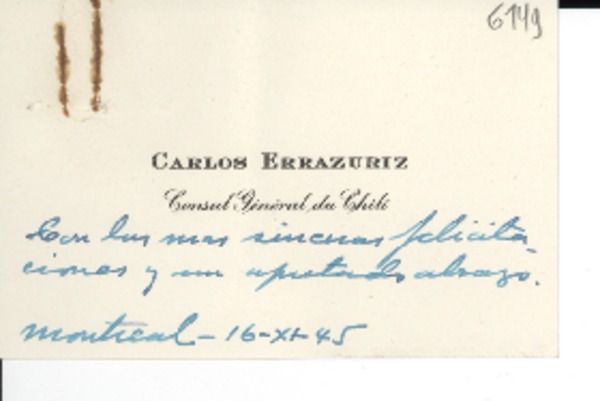 6149
CARLOS ERRAZURIZ
Consul Général du Chili
Con las mas sinceras felicita-
ciones y un apretado abrazo.
Montreal - 16-XI-45